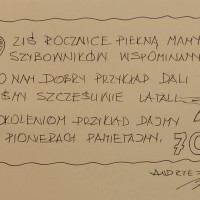 ZIŚ ROCZNICĘ PIĘKNĄ MAMY
SZYBOWNIKÓW WSPOMINAMY
O NAM DOBRY PRZYKŁAD DALI
ŚMY SZCZĘŚLIWIE LATALI
OKOLENIOM PRZYKŁAD DAJMY
PIONIERACH PAMIĘTAJMY.
70
ANDRZEJ